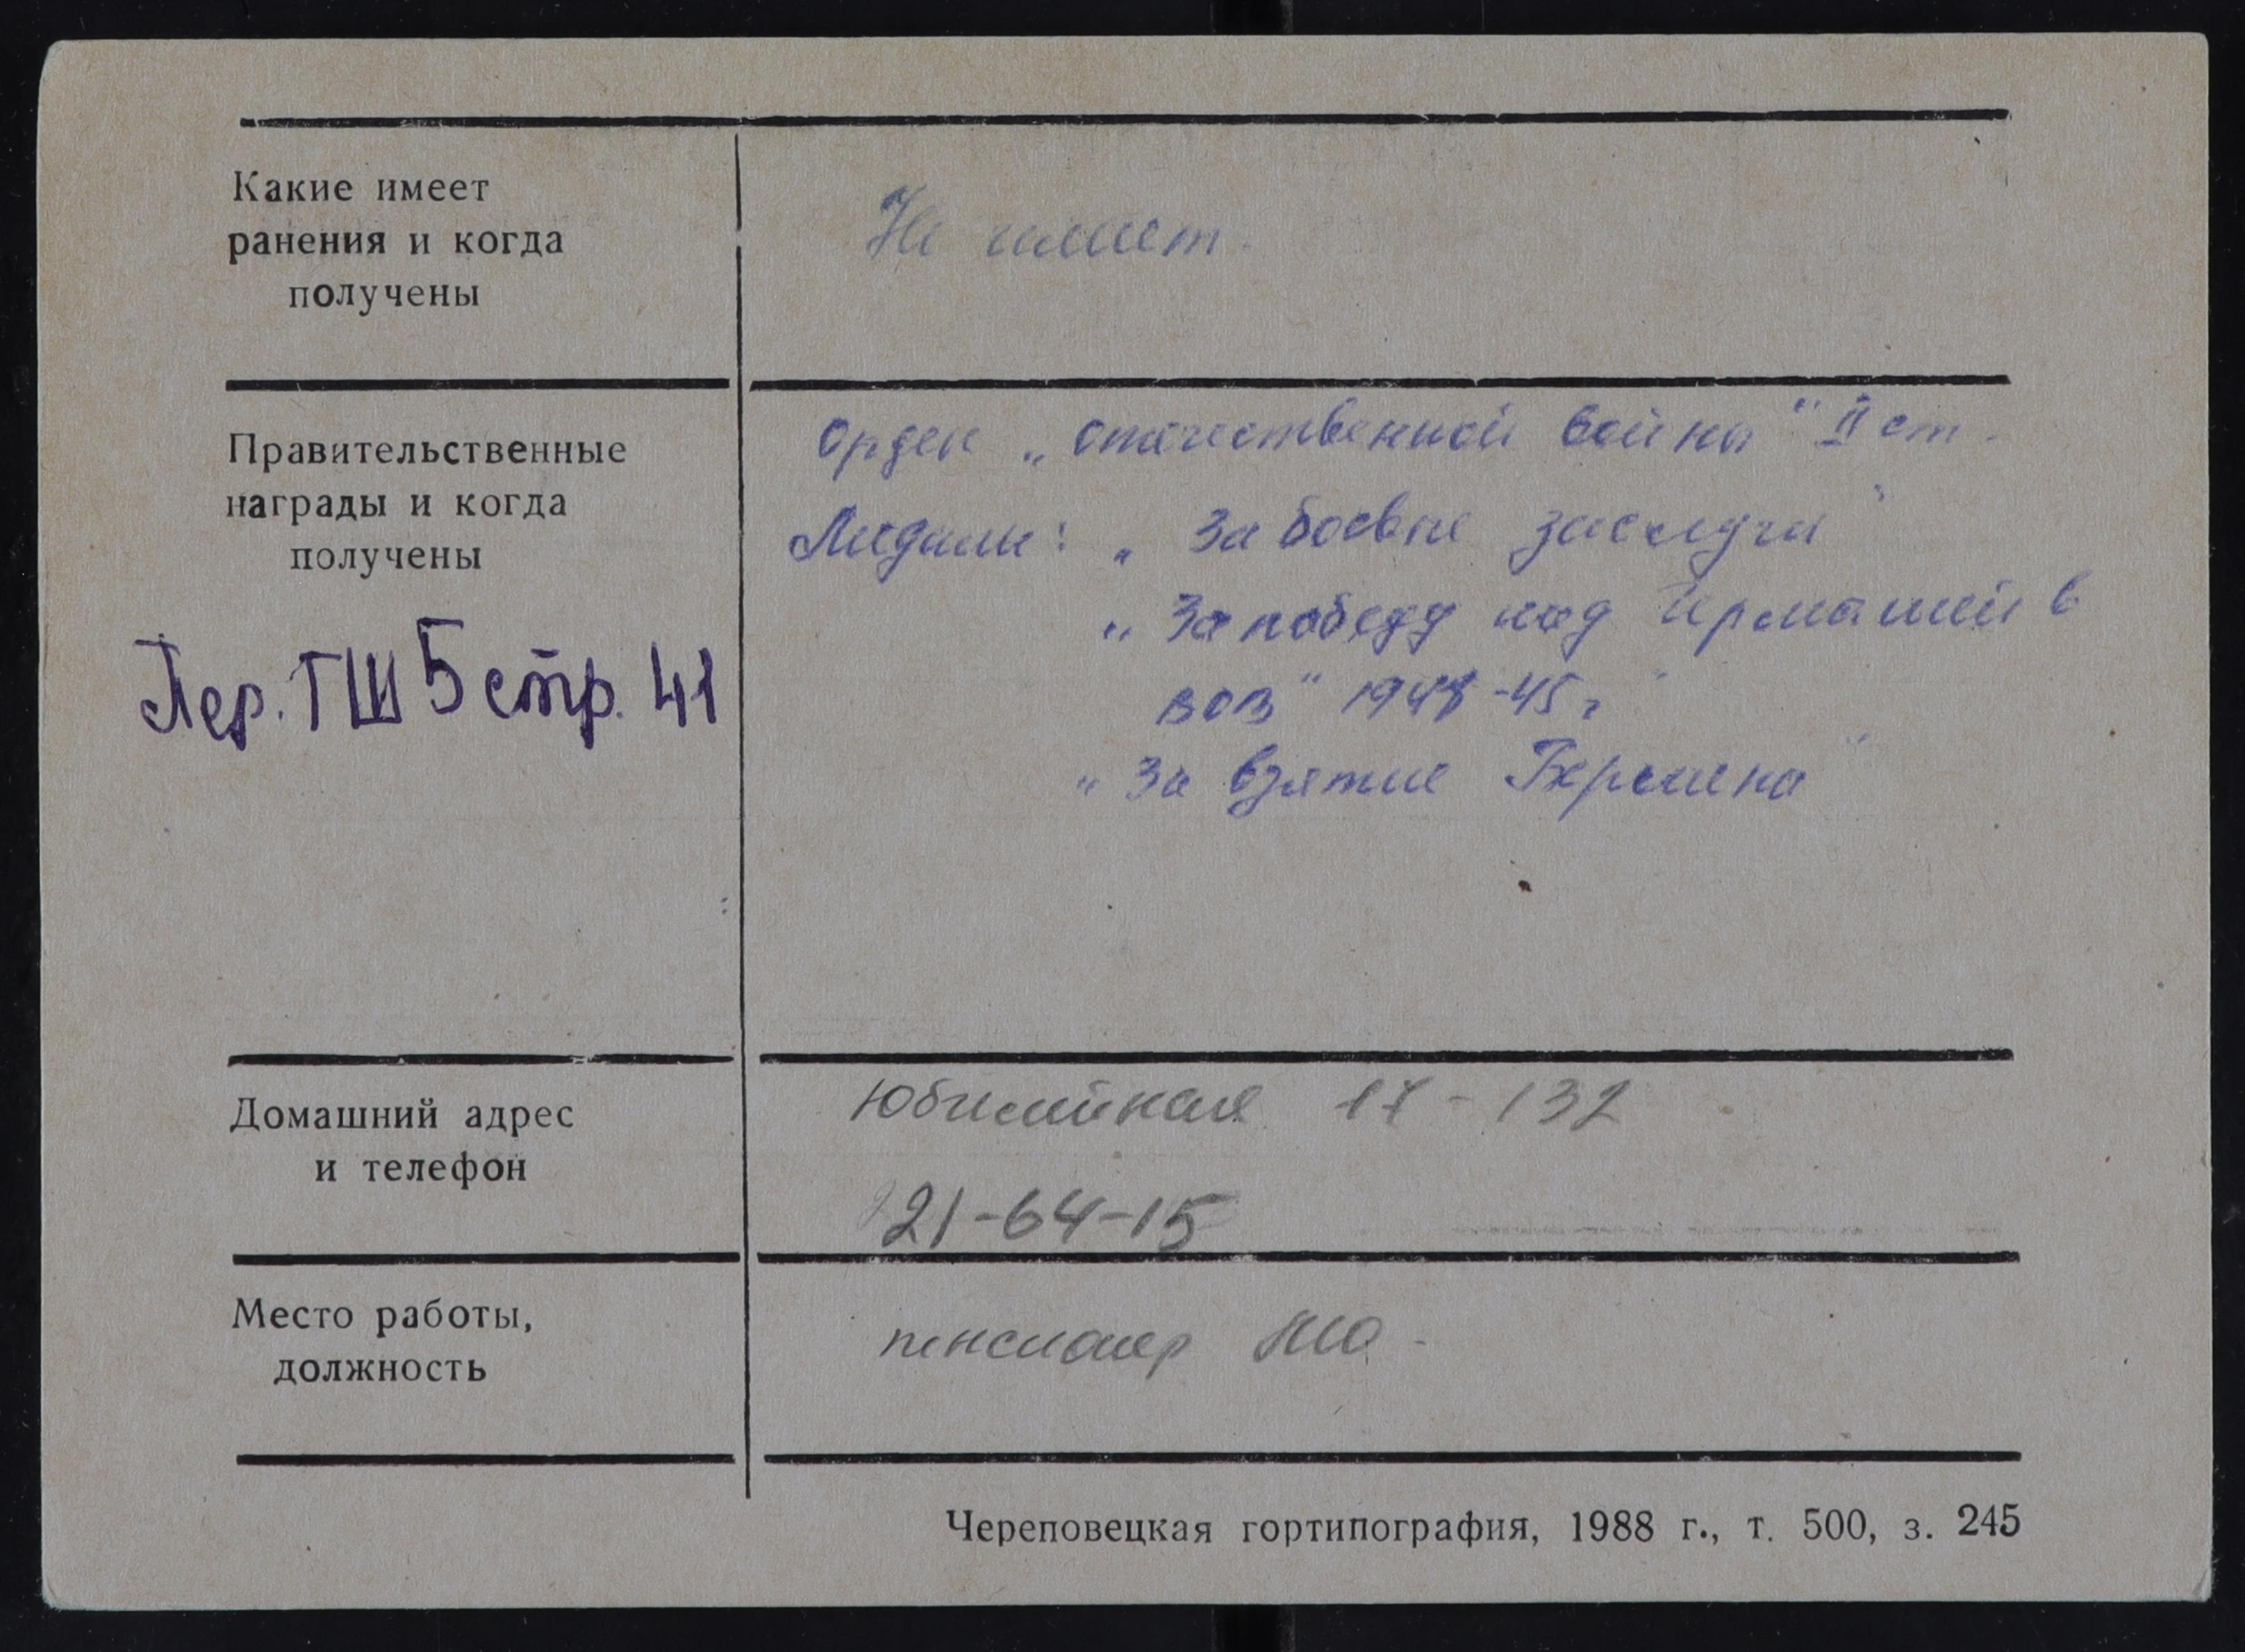 Какие имеет
ранения и когда
получены
Не имеет.
Правительственные
награды и когда
получены
Орден „Отечественной войны" II ст.
Медали: „За боевые заслуги"
„За победу над Германией в
ВОВ" 1941-45г."
„За взятие Берлина"
Пер. ТШ 5 стр. 41
Домашний адрес
и телефон
Юбилейная 17-132
21-64-15
Место работы,
должность
пенсионер МО.
Череповецкая гортипография, 1988 г., т. 500, з. 245